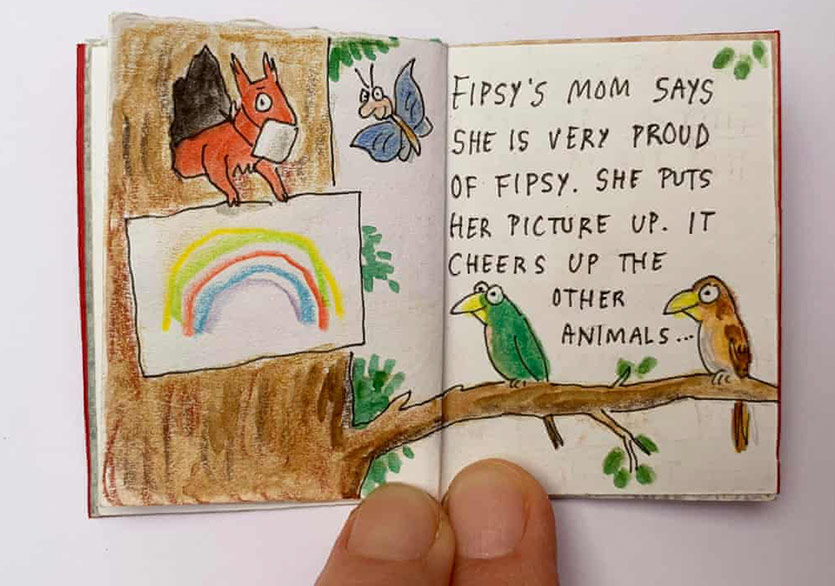 FIPSY'S MOM SAYS
SHE IS VERY PROUD
OF FIPSY. SHE PUTS
HER PICTURE UP. IT
CHEERS UP THE
OTHER
ANIMALS...